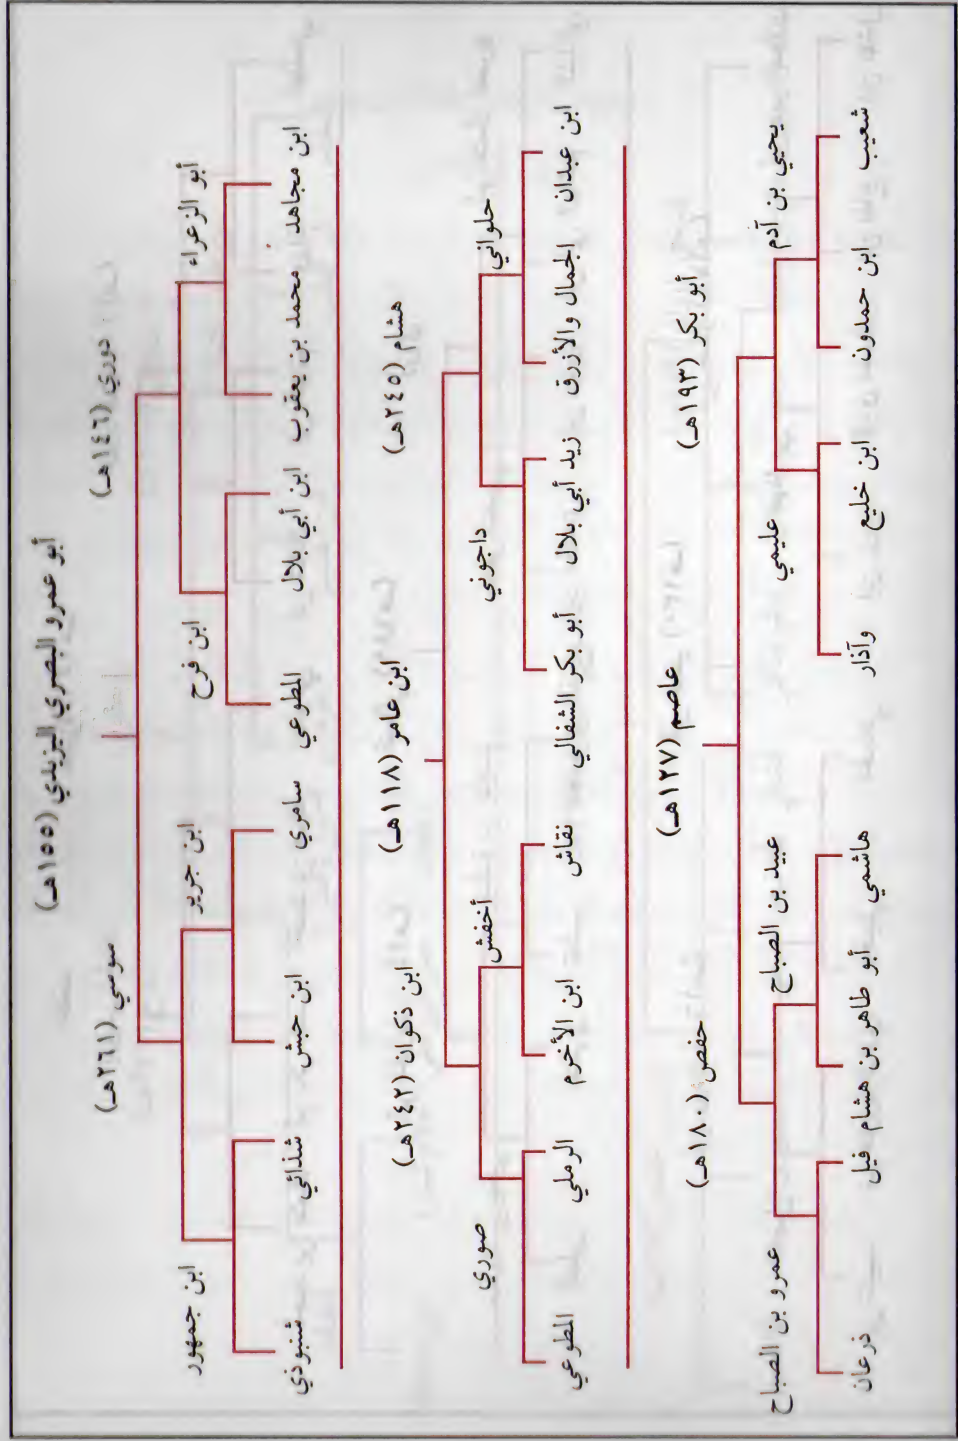 أبو عمرو البصري اليزيدي (١٥٥هـ)
دوري (١٤٦هـ) سوسي (٢٦١هـ)
أبو الزعراء ابن فرح ابن جرير ابن جمهور
ابن مجاهد محمد بن يعقوب ابن أبي بلال المطوعي سامري ابن حبش شذائي شنبوذي
ابن عامر (١١٨هـ)
هشام (٢٤٥هـ) ابن ذكوان (٢٤٢هـ)
حلواني داجوني أخفش صوري
ابن عبدان الجمال والأزرق زيد أبي بلال أبو بكر الشفالي نقاش ابن الأخرم الرملي المطوعي
عاصم (١٢٧هـ)
أبو بكر (١٩٣هـ) حفص (١٨٠هـ)
يحيي بن آدم عليمي عبيد بن الصباح عمرو بن الصباح
شعيب ابن حمدون ابن خليع وآذار هاشمي أبو طاهر بن هشام فيل ذرعان